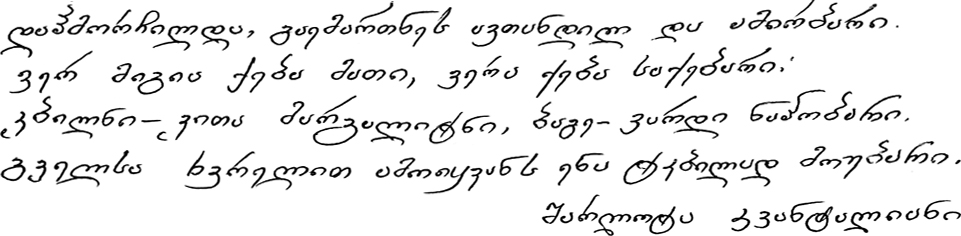 დაჰმორჩილდა, გაემართნეს ავთანდილ და ამირბარი.
ვერ მიგია ქება მათი, ვერა ქება საქებარი:
კბილნი – ვითა მარგალიტნი, ბაგე – ვარდი ნაპობარი.
გველსა ხვრელით ამოიყვანს ენა ტკბილად მოუბარი.
შარლოტა კვანტალიანი